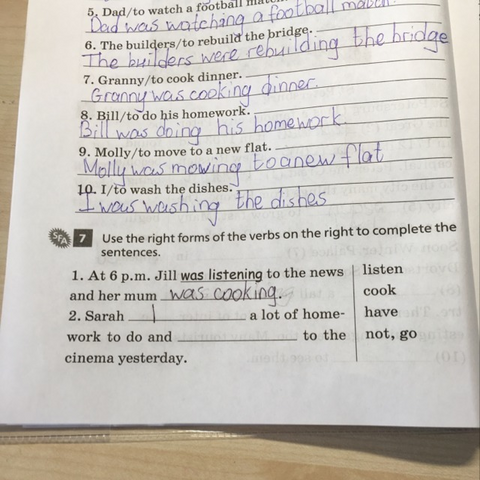 5. Dad/to watch a football match.
Dad was watching a football match.
6. The builders/to rebuild the bridge.
The builders were rebuilding the bridge
7. Granny/to cook dinner.
Granny was cooking dinner.
8. Bill/to do his homework.
Bill was doing his homework.
9. Molly/to move to a new flat.
Molly was mowing to a new flat
10. I/to wash the dishes.
I was washing the dishes
SFA 7 Use the right forms of the verbs on the right to complete the
sentences.
1. At 6 p.m. Jill was listening to the news listen
and her mum was cooking. cook
2. Sarah a lot of home- have
work to do and to the not, go
cinema yesterday.